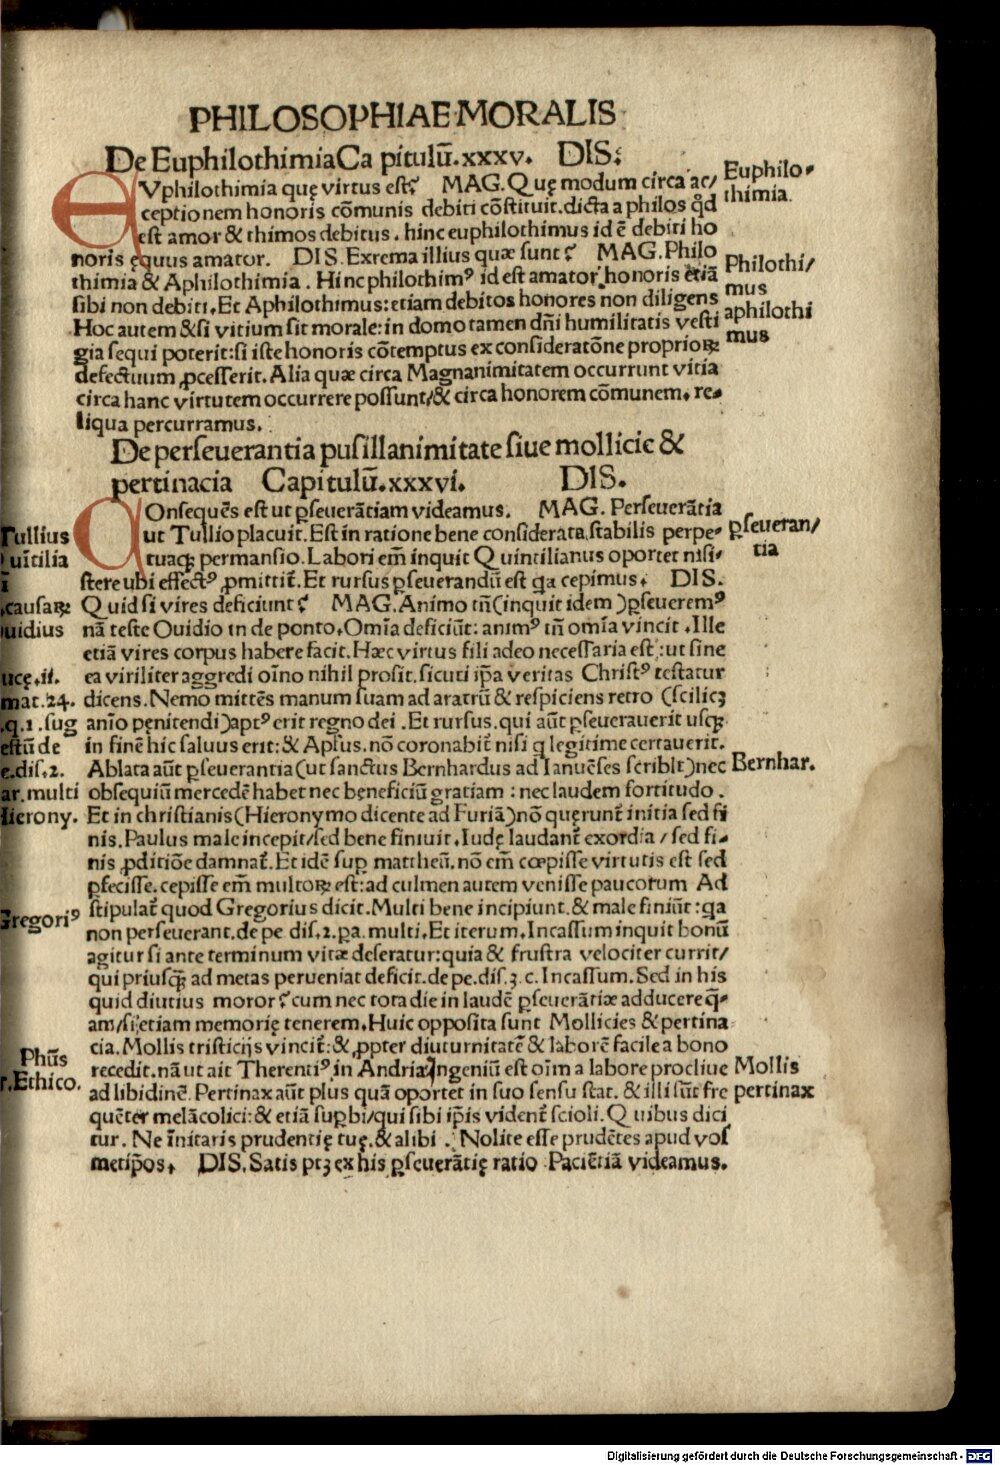 PHILOSOPHIAE MORALIS
De Euphilothimia Ca pitulū.xxxv. DIS.
EVphilothimia quę virtus est? MAG. Quę modum circa ac/
ceptionem honoris cōmunis debiti cōstituit. dicta a philos qđ
est amor & thimos debitus. hinc euphilothimus id ē debiti ho
noris ęquus amator. DIS. Exrema illius quæ sunt? MAG. Philo
thimia & Aphilothimia. Hinc philothimꝰ id est amator honoris etiā
sibi non debiti. Et Aphilothimus: etiam debitos honores non diligens
Hoc autem & si vitium sit morale: in domo tamen dn̄i humilitatis vesti
gia sequi poterit: si iste honoris cōtemptus ex consideratōne proprioꝝ
defectuum ꝓcesserit. Alia quæ circa Magnanimitatem occurrunt vitia
circa hanc virtutem occurrere possunt/& circa honorem cōmunem. re-
liqua percurramus.
Euphilo-
thimia.
Philothi/
mus
aphilothi
mus
De perseuerantia pusillanimitate siue mollicie &
pertinacia Capitulū.xxxvi. DIS.
COnsequēs est ut ꝑseuerātiam videamus. MAG. Perseuerātia
ut Tullio placuit. Est in ratione bene considerata, stabilis perpe-
tuaqꝫ permansio. Labori em̄ inquit Quintilianus oportet nisi-
stere ubi effectꝰ ꝓmittit̄. Et rursus ꝑseuerandū est qa cepimus. DIS.
Quid si vires deficiunt? MAG. Animo tn̄ (inquit idem) ꝑseueremꝰ
nā teste Ouidio in de ponto. Omīa deficiūt: animꝰ tn̄ omīa vincit. Ille
etiā vires corpus habere facit. Hæc virtus fili adeo necessaria est: ut sine
ea viriliter aggredi oīno nihil prosit. sicuti ip̄a veritas Christꝰ testatur
dicens. Nemo mittēs manum suam ad aratrū & respiciens retro (scilicꝫ
anīo pęnitendi) aptꝰ erit regno dei. Et rursus. qui aūt ꝑseuerauerit usqꝫ
in finē hic saluus erit: & Apl̄us. nō coronabit̄ nisi q legitime certauerit.
Ablata aūt ꝑseuerantia (ut sanctus Bernhardus ad Ianuēses scribit) nec
obsequiū mercedē habet nec beneficiū gratiam: nec laudem fortitudo.
Et in christianis (Hieronymo dicente ad Furiā) nō quęrunt̄ initia sed fi
nis. Paulus male incepit/sed bene finiuit. Iudę laudant̄ exordia / sed fi-
nis ꝓditiōe damnat̄. Et idē suꝑ mattheū. nō em̄ cœpisse virtutis est sed
ꝑfecisse. cepisse em̄ multoꝝ est: ad culmen autem venisse paucorum Ad
stipulat̄ quod Gregorius dicit. Multi bene incipiunt. & male finiūt: qa
non perseuerant. de pe dis.2. pa. multi. Et iterum. Incassum inquit bonū
agitur si ante terminum vitæ deseratur: quia & frustra velociter currit/
qui priusqꝫ ad metas perueniat deficit. de pe. dis.3. c. Incassum. Sed in his
quid diutius moror? cum nec tota die in laudē ꝑseuerātiæ adducere q̄-
am/si etiam memorię tenerem. Huic opposita sunt Mollicies & pertina
cia. Mollis tristicijs vincit̄: & ꝓpter diuturnitatē & laborē facile a bono
recedit. nā ut ait Therentiꝰ in Andria. Ingeniū est oīm a labore procliue
ad libidinē. Pertinax aūt plus quā oportet in suo sensu stat. & illi sūt fre
quēter melācolici: & etiā suꝑbi/qui sibi ip̄is vident̄ scioli. Quibus dici
tur. Ne īnitaris prudentię tuę. & alibi. Nolite esse prudētes apud vos
metip̄os. DIS. Satis ptꝫ ex his ꝑseuerātię ratio Paciētiā videamus.
ꝑseueran/
tia
Bernhar.
Mollis
pertinax
Tullius
uītilia
ī
.causaꝝ
uidius
ucę.ii.
mat.24.
.q.1.sug
estū de
e.dis.2.
ar.multi
Hierony.
Gregoriꝰ
Phūs
.Ethico.
Digitalisierung gefördert durch die Deutsche Forschungsgemeinschaft - DFG